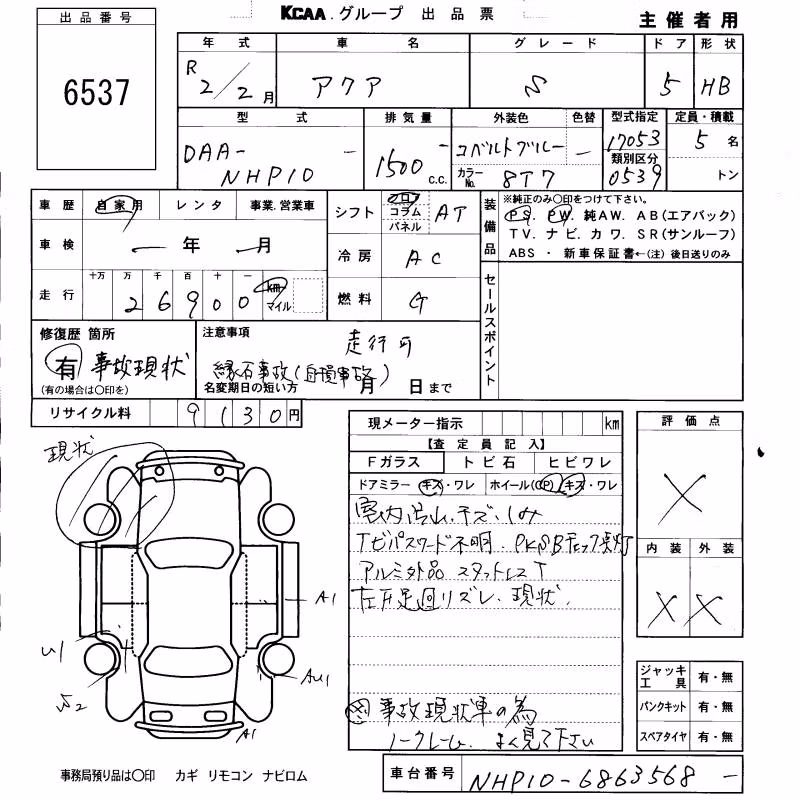 出品番号
6537
KCAA.グループ 出品票
主催者用
年式 車名 グレード ドア 形状
R2/2月 アクア S 5 HB
型式 排気量 外装色 色替 型式指定 定員・積載
DAA-NHP10 - 1500 c.c. コバルトブルー - 17053 5名
カラーNo. 8T7 類別区分 0539 トン
車歴 自家用 レンタ 事業.営業車
シフト フロア コラム パネル AT
装備品 ※純正のみ〇印をつけて下さい。
PS. PW. 純AW. AB(エアバック)
TV. ナビ. カワ. SR(サンルーフ)
ABS ・ 新車保証書←(注) 後日送りのみ
車検 ー年ー月
冷房 AC
走行 十万 万 千 百 十 一
26900 km マイル
燃料 G
セールスポイント
修復歴 箇所
有 事故現状
(有の場合は〇印を)
注意事項
走行可
縁石事故(自損事故)
名変期日の短い方 月 日まで
リサイクル料 9130円
現メーター指示 km
【査定員記入】
Fガラス トビ石 ヒビワレ
ドアミラー キズ・ワレ ホイール(CP) キズ・ワレ
室内汚れ.キズ.しみ
Tビパスワード不明.
アルミ外品 スタットレスT
現状.
図 事故現状車の為
ノークレーム.よく見て下さい
評価点
X
内装 外装
X X
現状
A1
U1
AU1
A1
ジャッキ工具 有・無
パンクキット 有・無
スペアタイヤ 有・無
事務局預り品は〇印 カギ リモコン ナビロム
車台番号 NHP10-6863568 -